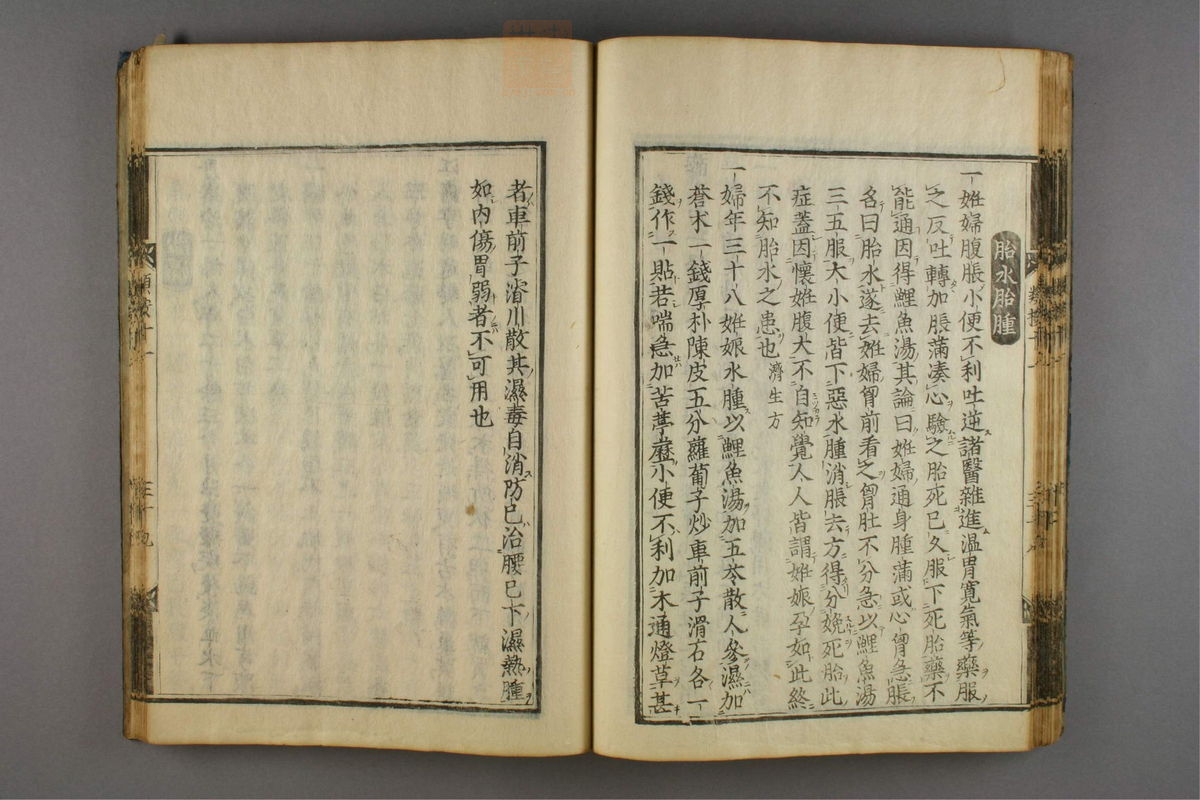 胎水胎腫
一姙婦腹脹小便不利吐逆諸醫雜進温胃寛氣等藥服
之反吐轉加脹滿湊心驗之胎死已久服下死胎藥不
能通因得鯉魚湯其論曰姙婦通身腫滿或心胷急脹
名曰胎水遂去姙婦胷前看之胷肚不分急以鯉魚湯
三五服大小便皆下惡水腫消脹去方得分娩死胎此
症蓋因懷姙腹大不自知覺人人皆謂姙娠孕如此終
不知胎水之患也濟生方
一婦年三十八姙娠水腫以鯉魚湯加五苓散人參濕加
蒼朮一錢厚朴陳皮五分蘿蔔子炒車前子滑石各一
錢作一貼若喘急加苦葶藶小便不利加木通燈草甚
者車前子濬川散其濕毒自消防已治腰已下濕熱腫
如内傷胃弱者不可用也